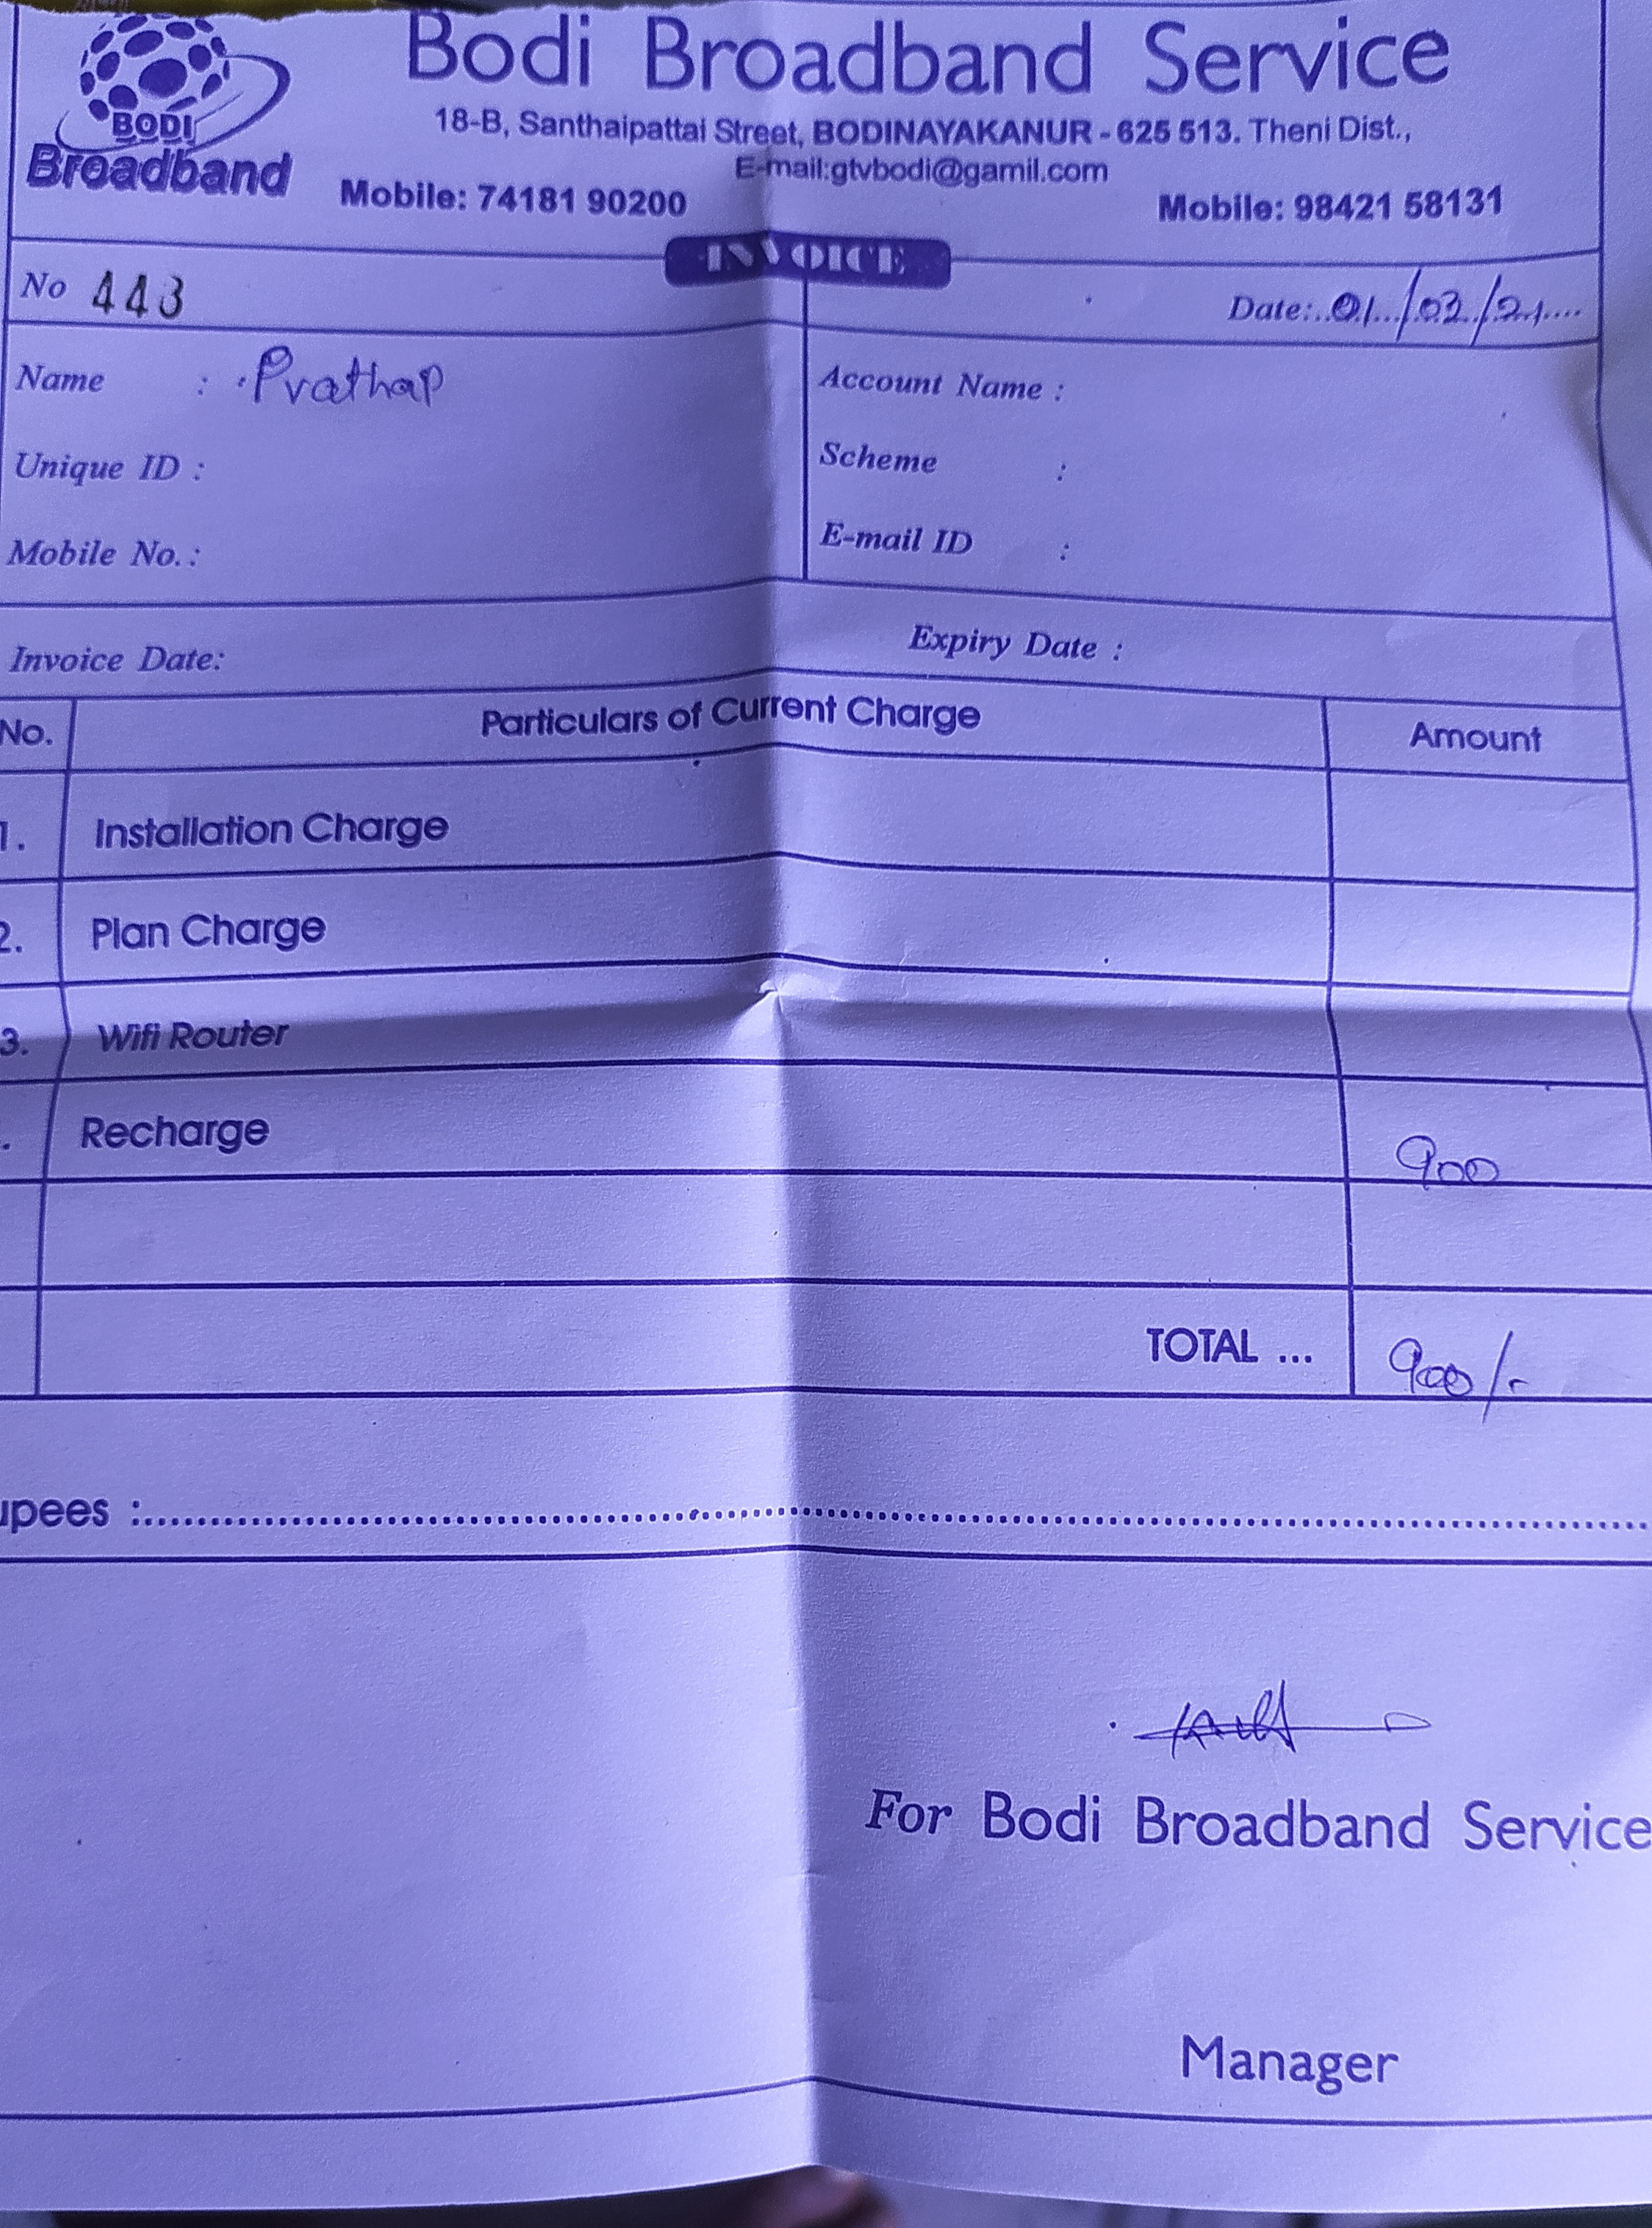 BODI
Broadband
Bodi Broadband Service
18-B, Santhaipattai Street, BODINAYAKANUR - 625 513. Theni Dist.,
E-mail:gtvbodi@gamil.com
Mobile: 74181 90200 Mobile: 98421 58131
INVOICE
No 443 Date:..01../.02./21....
Name : Prathap Account Name :
Unique ID : Scheme :
Mobile No. : E-mail ID :
Invoice Date: Expiry Date :
No. Particulars of Current Charge Amount
1. Installation Charge
2. Plan Charge
3. Wifi Router
. Recharge 900
TOTAL ... 900/-
upees :..........
For Bodi Broadband Service
Manager